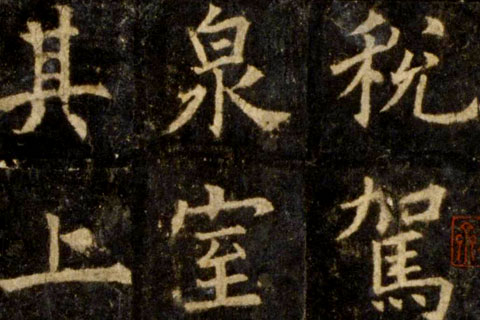 税駕
泉室
其上